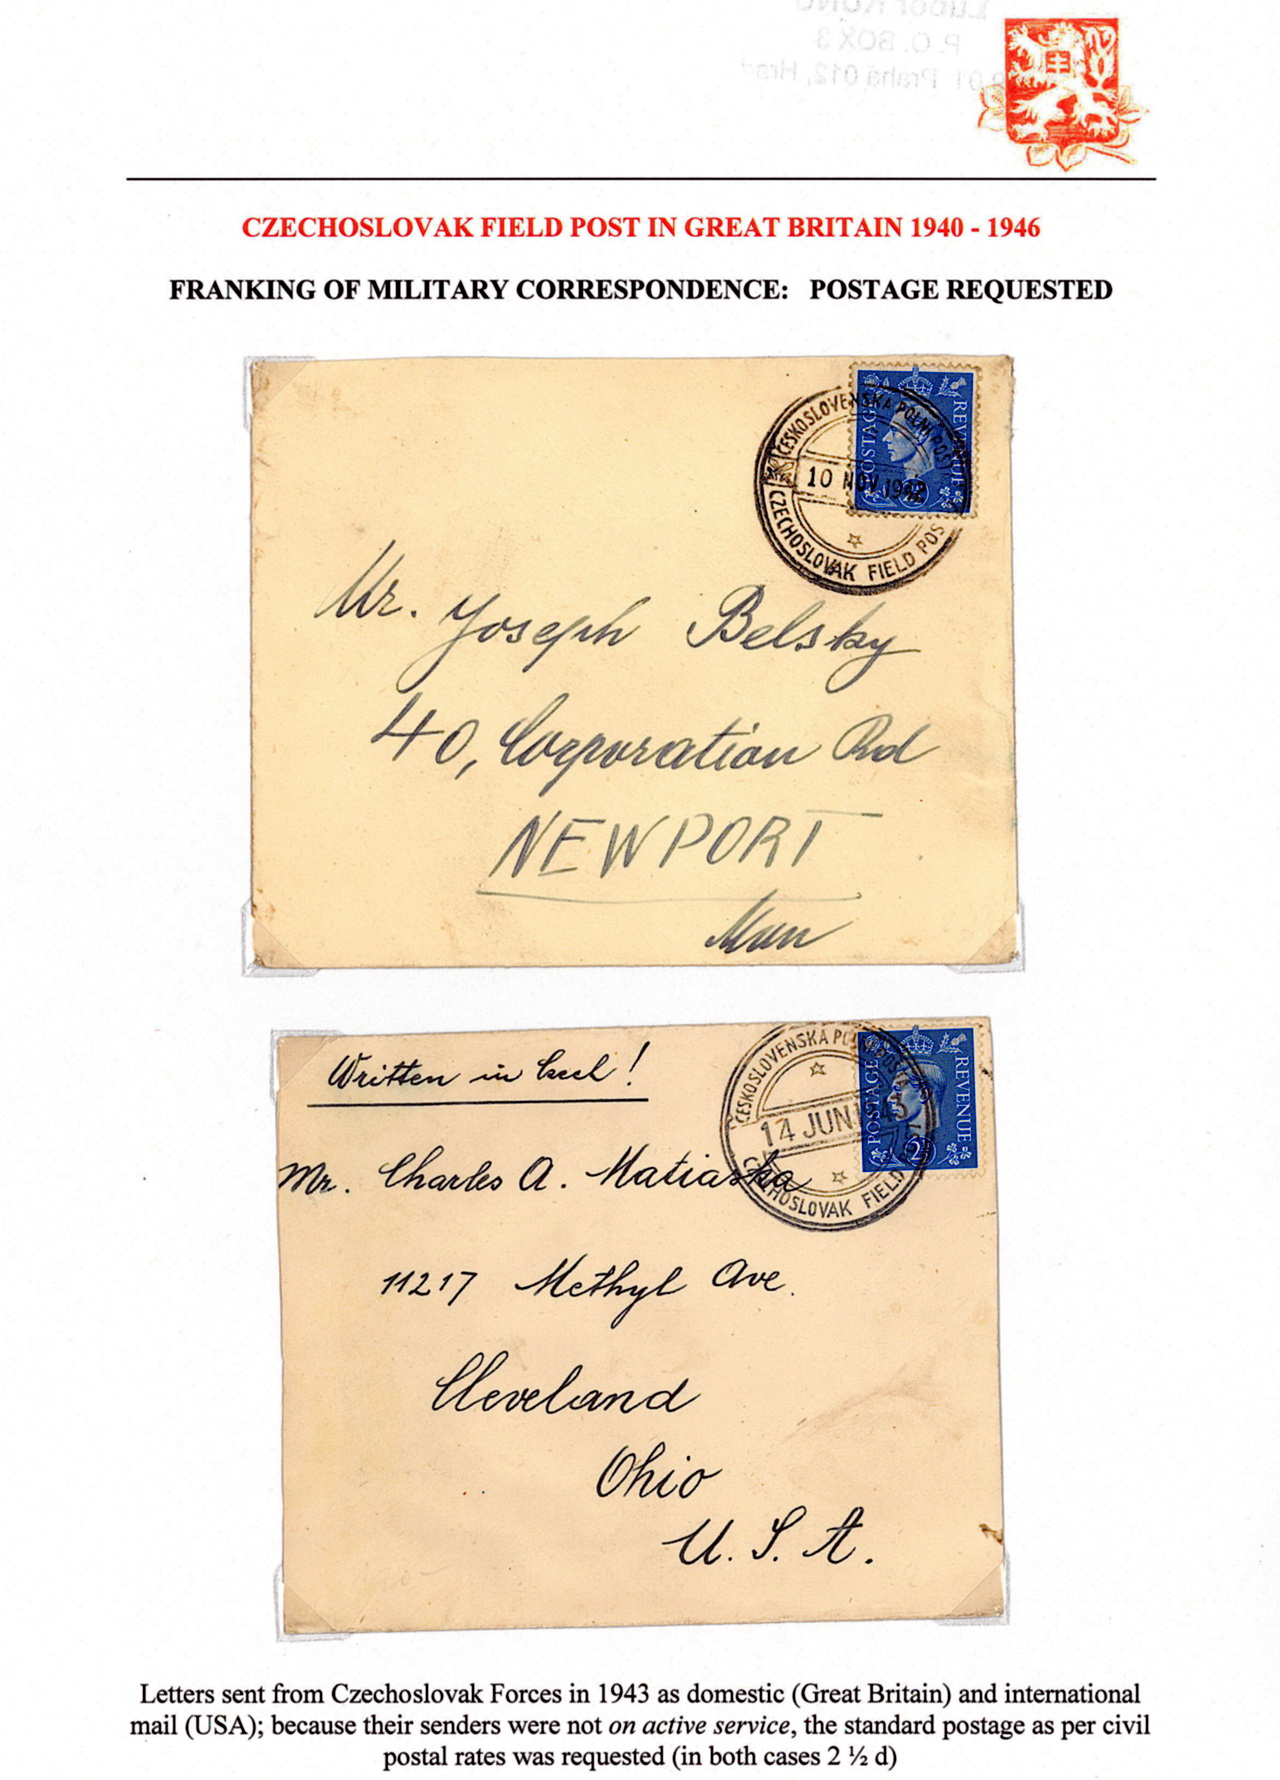 Lubor KUNC
P. O. BOX 3
Praha 012, Hrad
CZECHOSLOVAK FIELD POST IN GREAT BRITAIN 1940 - 1946
FRANKING OF MILITARY CORRESPONDENCE: POSTAGE REQUESTED
POSTAGE REVENUE
ČESKOSLOVENSKÁ POLNÍ POŠTA
10 NOV 1942
CZECHOSLOVAK FIELD POS
Mr. Joseph Belsky
40, Corporation Rd
NEWPORT
Mon
Written in Czech!
POSTAGE REVENUE
2
ČESKOSLOVENSKÁ POLNÍ POŠTA
14 JUN 43
CZECHOSLOVAK FIELD
Mr. Charles A. Matiaska
11217 Methyl Ave.
Cleveland
Ohio
U. S. A.
Letters sent from Czechoslovak Forces in 1943 as domestic (Great Britain) and international
mail (USA); because their senders were not on active service, the standard postage as per civil
postal rates was requested (in both cases 2 ½ d)